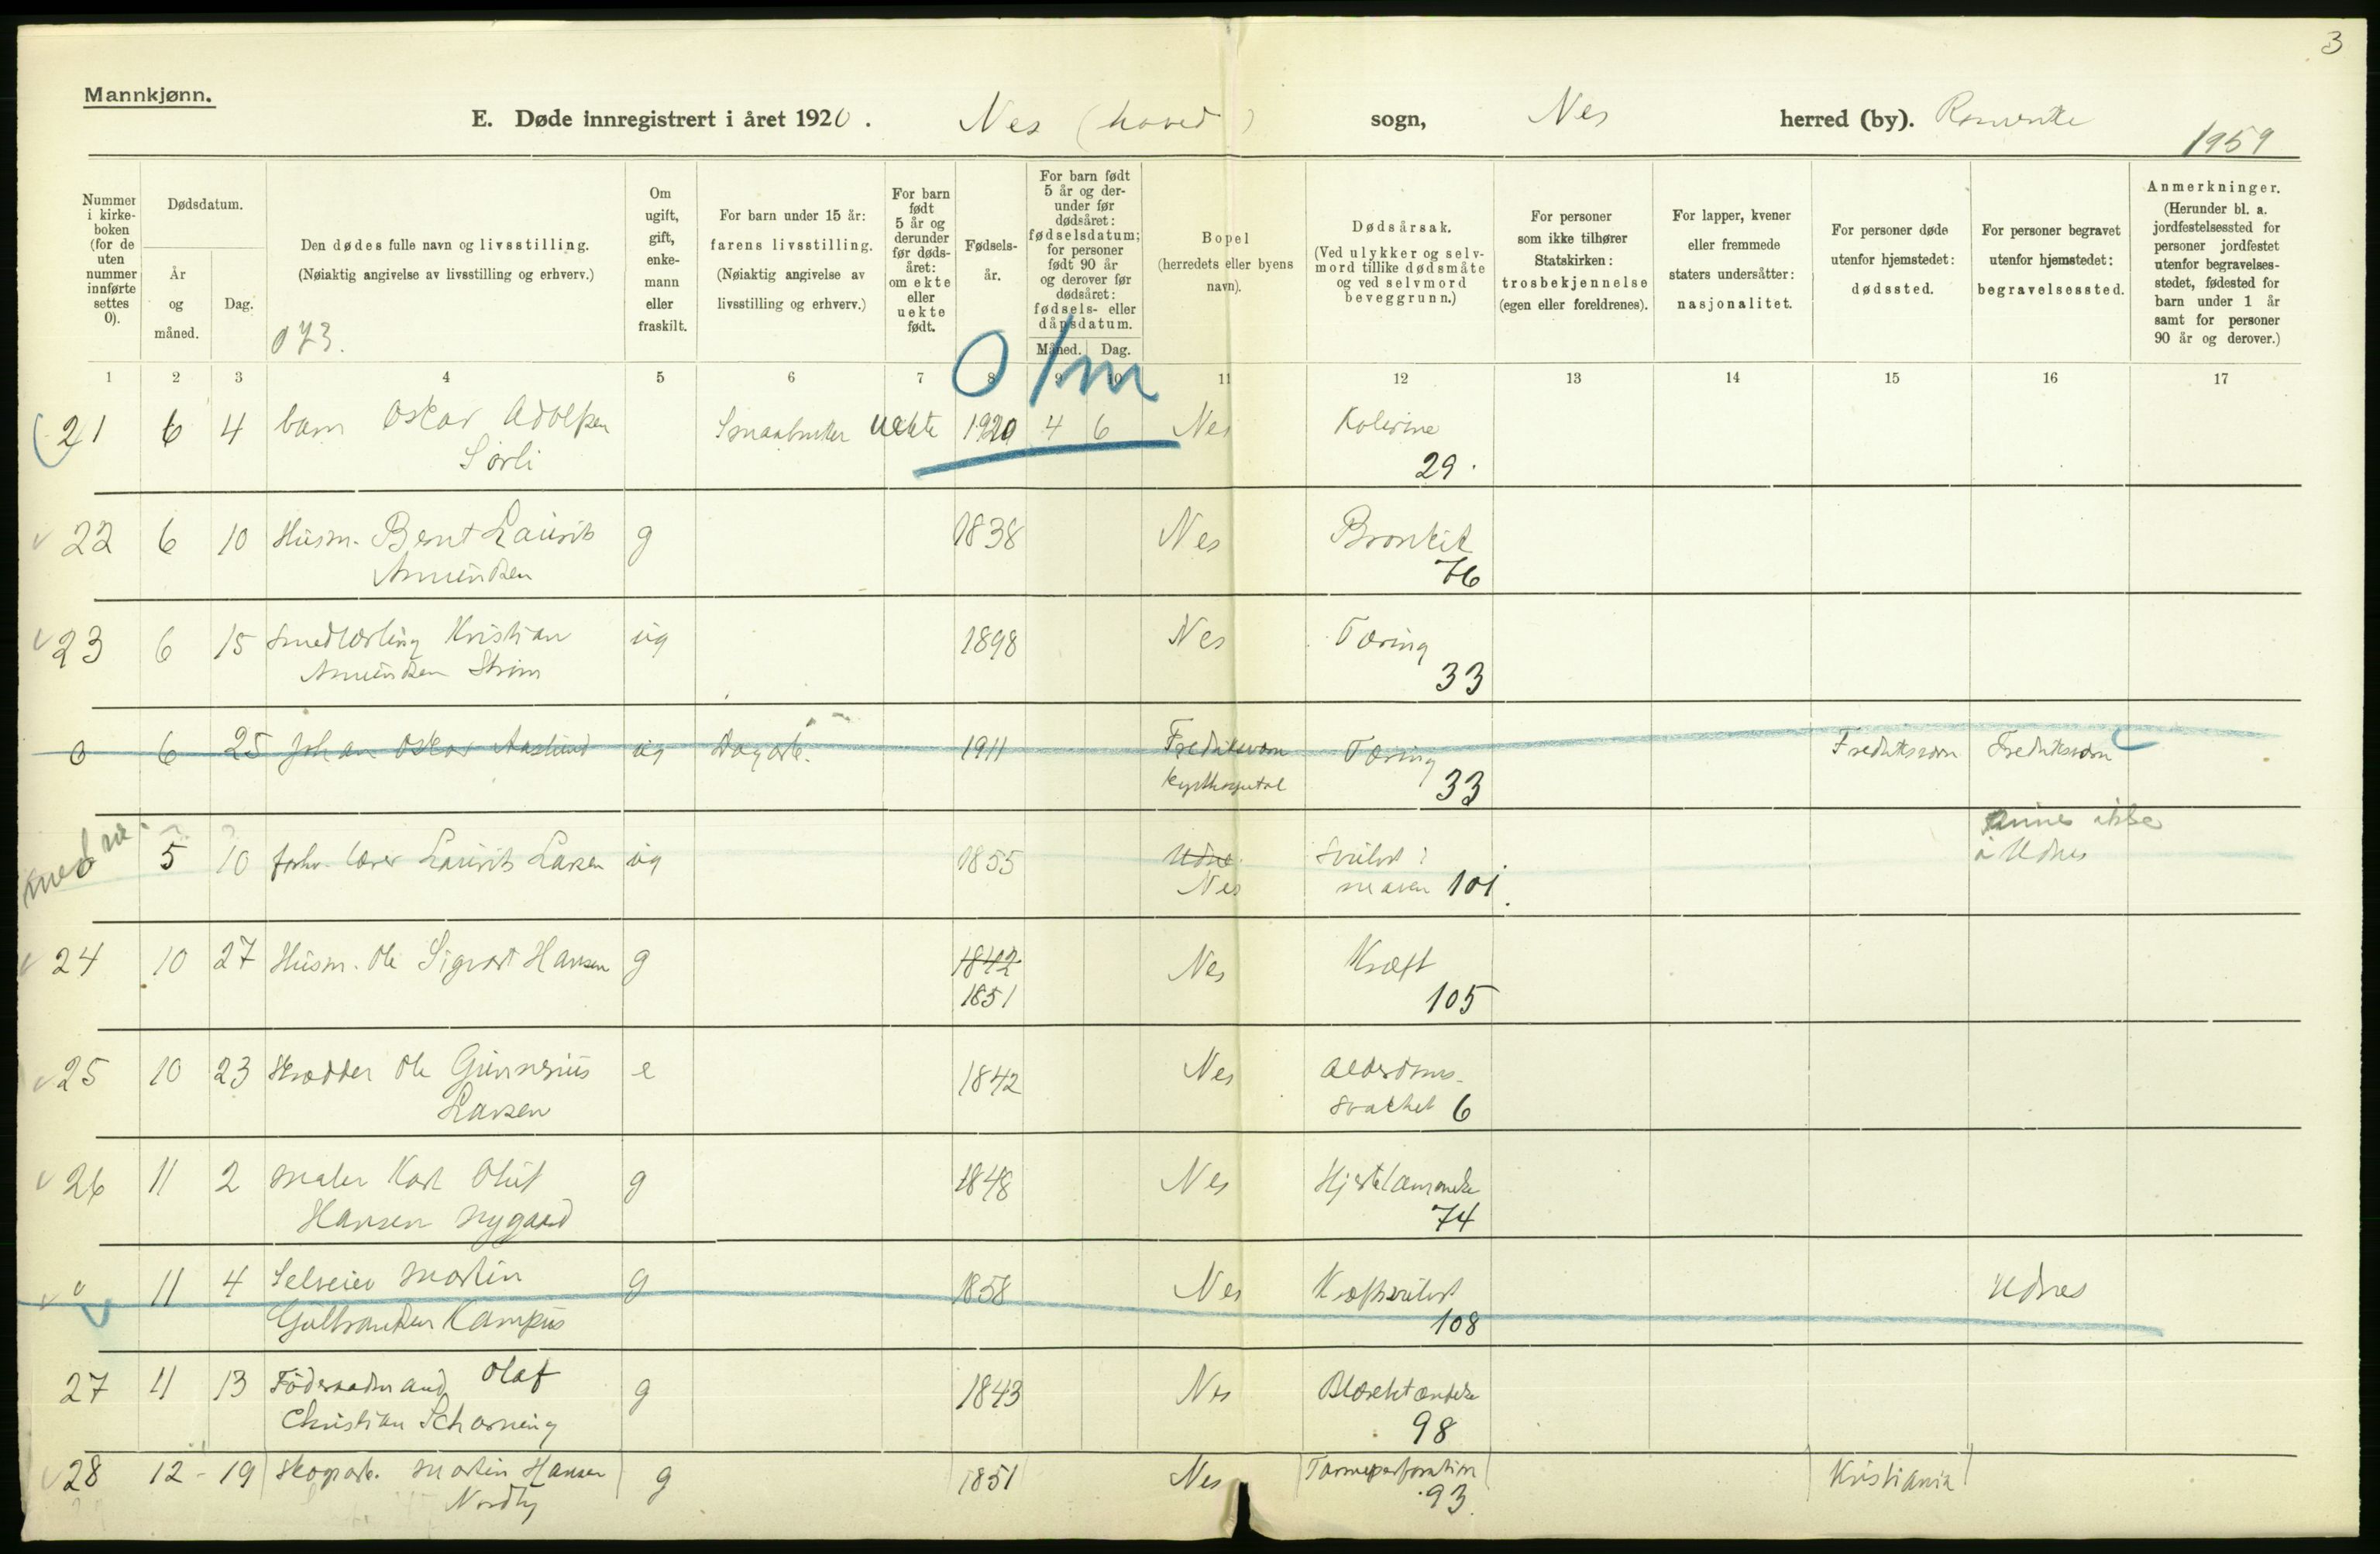 3
Mannkjønn.
E. Døde innregistrert i året 1920. Nes (hoved) sogn, Nes herred (by). Romerike
1959
Nummer i kirke-boken (for de uten nummer innførte settes 0).
Dødsdatum.
År og måned.
Dag.
Den dødes fulle navn og livsstilling.
(Nøiaktig angivelse av livsstilling og erhverv.)
073.
Om ugift, gift, enke-mann eller fraskilt.
For barn under 15 år: farens livsstilling.
(Nøiaktig angivelse av livsstilling og erhverv.)
For barn født 5 år og derunder før døds-året: om ekte eller uekte født.
Fødsels-år.
For barn født 5 år og der-under før dødsåret: fødselsdatum; for personer født 90 år og derover før dødsåret: fødsels- eller dåpsdatum.
Måned. Dag.
Bopel (herredets eller byens navn).
Dødsårsak.
(Ved ulykker og selv-mord tillike dødsmåte og ved selvmord beveggrunn.)
For personer som ikke tilhører Statskirken: trosbekjennelse (egen eller foreldrenes).
For lapper, kvener eller fremmede staters undersåtter: nasjonalitet.
For personer døde utenfor hjemstedet: dødssted.
For personer begravet utenfor hjemstedet: begravelsessted.
Anmerkninger.
(Herunder bl. a. jordfestelsessted for personer jordfestet utenfor begravelses-stedet, fødested for barn under 1 år samt for personer 90 år og derover.)
1 2 3 4 5 6 7 8 9 10 11 12 13 14 15 16 17
0/m
21 6 4 barn Oskar Adolfsen Smaabruker uekte 1920 4 6 Nes Kolerine
Sørli 29.
22 6 10 Husm. Bernt Laurits g 1838 Nes Bronkit
Amundsen 76
23 6 15 Smedlærling Kristian ug 1898 Nes Tæring
Amundsen Strøm 33
0 6 25 Johan Oskar Aaslund ug Dagarb. 1911 Fredriksværn Tæring Fredriksværn Fredriksværn
kysthospital 33
0 5 10 forhv. lærer Laurits Larsen ug 1855 Udnes Svulst i
Nes maven 101
finnes ikke
i Udnes
24 10 27 Husm. Ole Sigvart Hansen g 1842 Nes Kræft
1851 105
25 10 23 Skrædder Ole Gunnerius e 1842 Nes Alderdoms-
Larsen svakhet 6
26 11 2 maler Karl Oluf g 1848 Nes Hjertelammelse
Hansen Nygaard 74
0 11 4 Selveier Martin g 1858 Nes Kræftsvulst Udnes
Gulbrandsen Kampus 108
27 11 13 Føderaadmand Olaf g 1843 Nes
Christian Scharning 98
28 12 - 19 Skogarb. Martin Hansen g 1851 Nes Tarmperforation Kristiania
Nordby 93